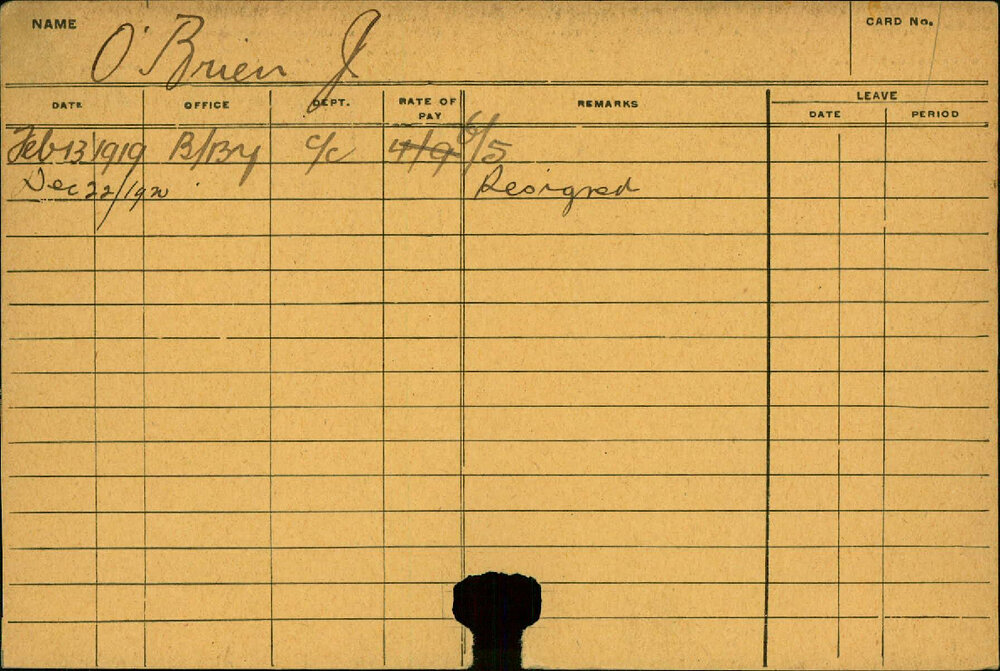 NAME O'Brien J. CARD No.
DATE OFFICE DEPT. RATE OF PAY REMARKS LEAVE
DATE PERIOD
Feb 13/1919 B/By C/C 4/9 6/5
Dec 22/1920 Resigned